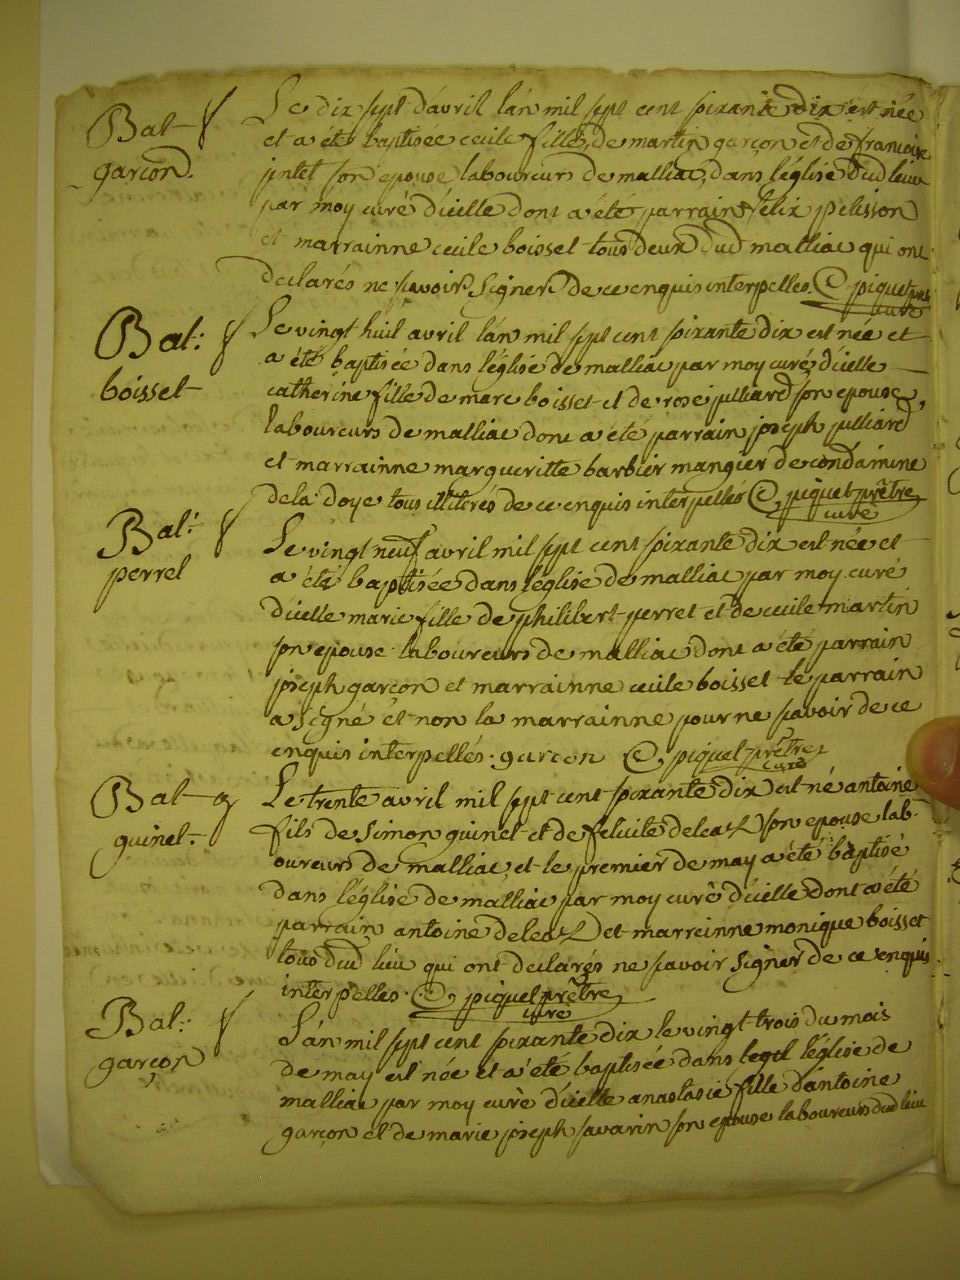 Bat f
garçon.
Le dix sept d'avril l'an mil sept cent soixante dix est née
et a été baptisée cecile fille de martin garçon et de francoise
son epouse laboureurs de malliac, dans l'église dud lieu
par moy curé d'icelle dont a été parrain felix pelisson
et marrainne cecile boisset tous deux dud malliac qui ont
declarés ne savoir signer de ce enquis interpelles. piquet prêtre
curé
Bat: f
boisset
Le vingt huit avril l'an mil sept cent soixante dix est née et
a été baptisée dans l'église de malliac par moy curé d'icelle
catherine fille de marc boisset et de rose julliard son epouse,
laboureurs de malliac dont a été parrain joseph julliard
et marrainne margueritte barbier mangier de condamine
de la doye tous illiterés de ce enquis interpellés piquet prêtre
curé
Bat: f
perret
Le vingt neuf avril mil sept cent soixante dix est née et
a été baptisée dans l'église de malliac par moy curé
d'icelle marie fille de philibert perret et de cecile martin
son epouse laboureurs de malliac dont a été parrain
joseph garçon et marrainne cecile boisset le parrain
a signé et non la marrainne pour ne savoir de ce
enquis interpellés. garcon piquet prêtre
curé
Bat g
guinet.
Le trente avril mil sept cent soixante dix est né antoine
fils de simon guinet et de felicité son epouse lab-
oureurs de malliac, et le premier de may a été baptisé
dans l'église de malliac par moy curé d'icelle dont a été
parrain antoine et marreinne monique boisset
tous dud lieu qui ont declarés ne savoir signer de ce enquis
interpelles. piquet prêtre
curé
Bat: f
garçon
L'an mil sept cent soixante dix le vingt trois du mois
de may est née et a été baptisée dans l'église de
malliac par moy curé d'icelle anastasie fille d'antoine
garçon et de marie joseph savarin son epouse laboureurs dud lieu